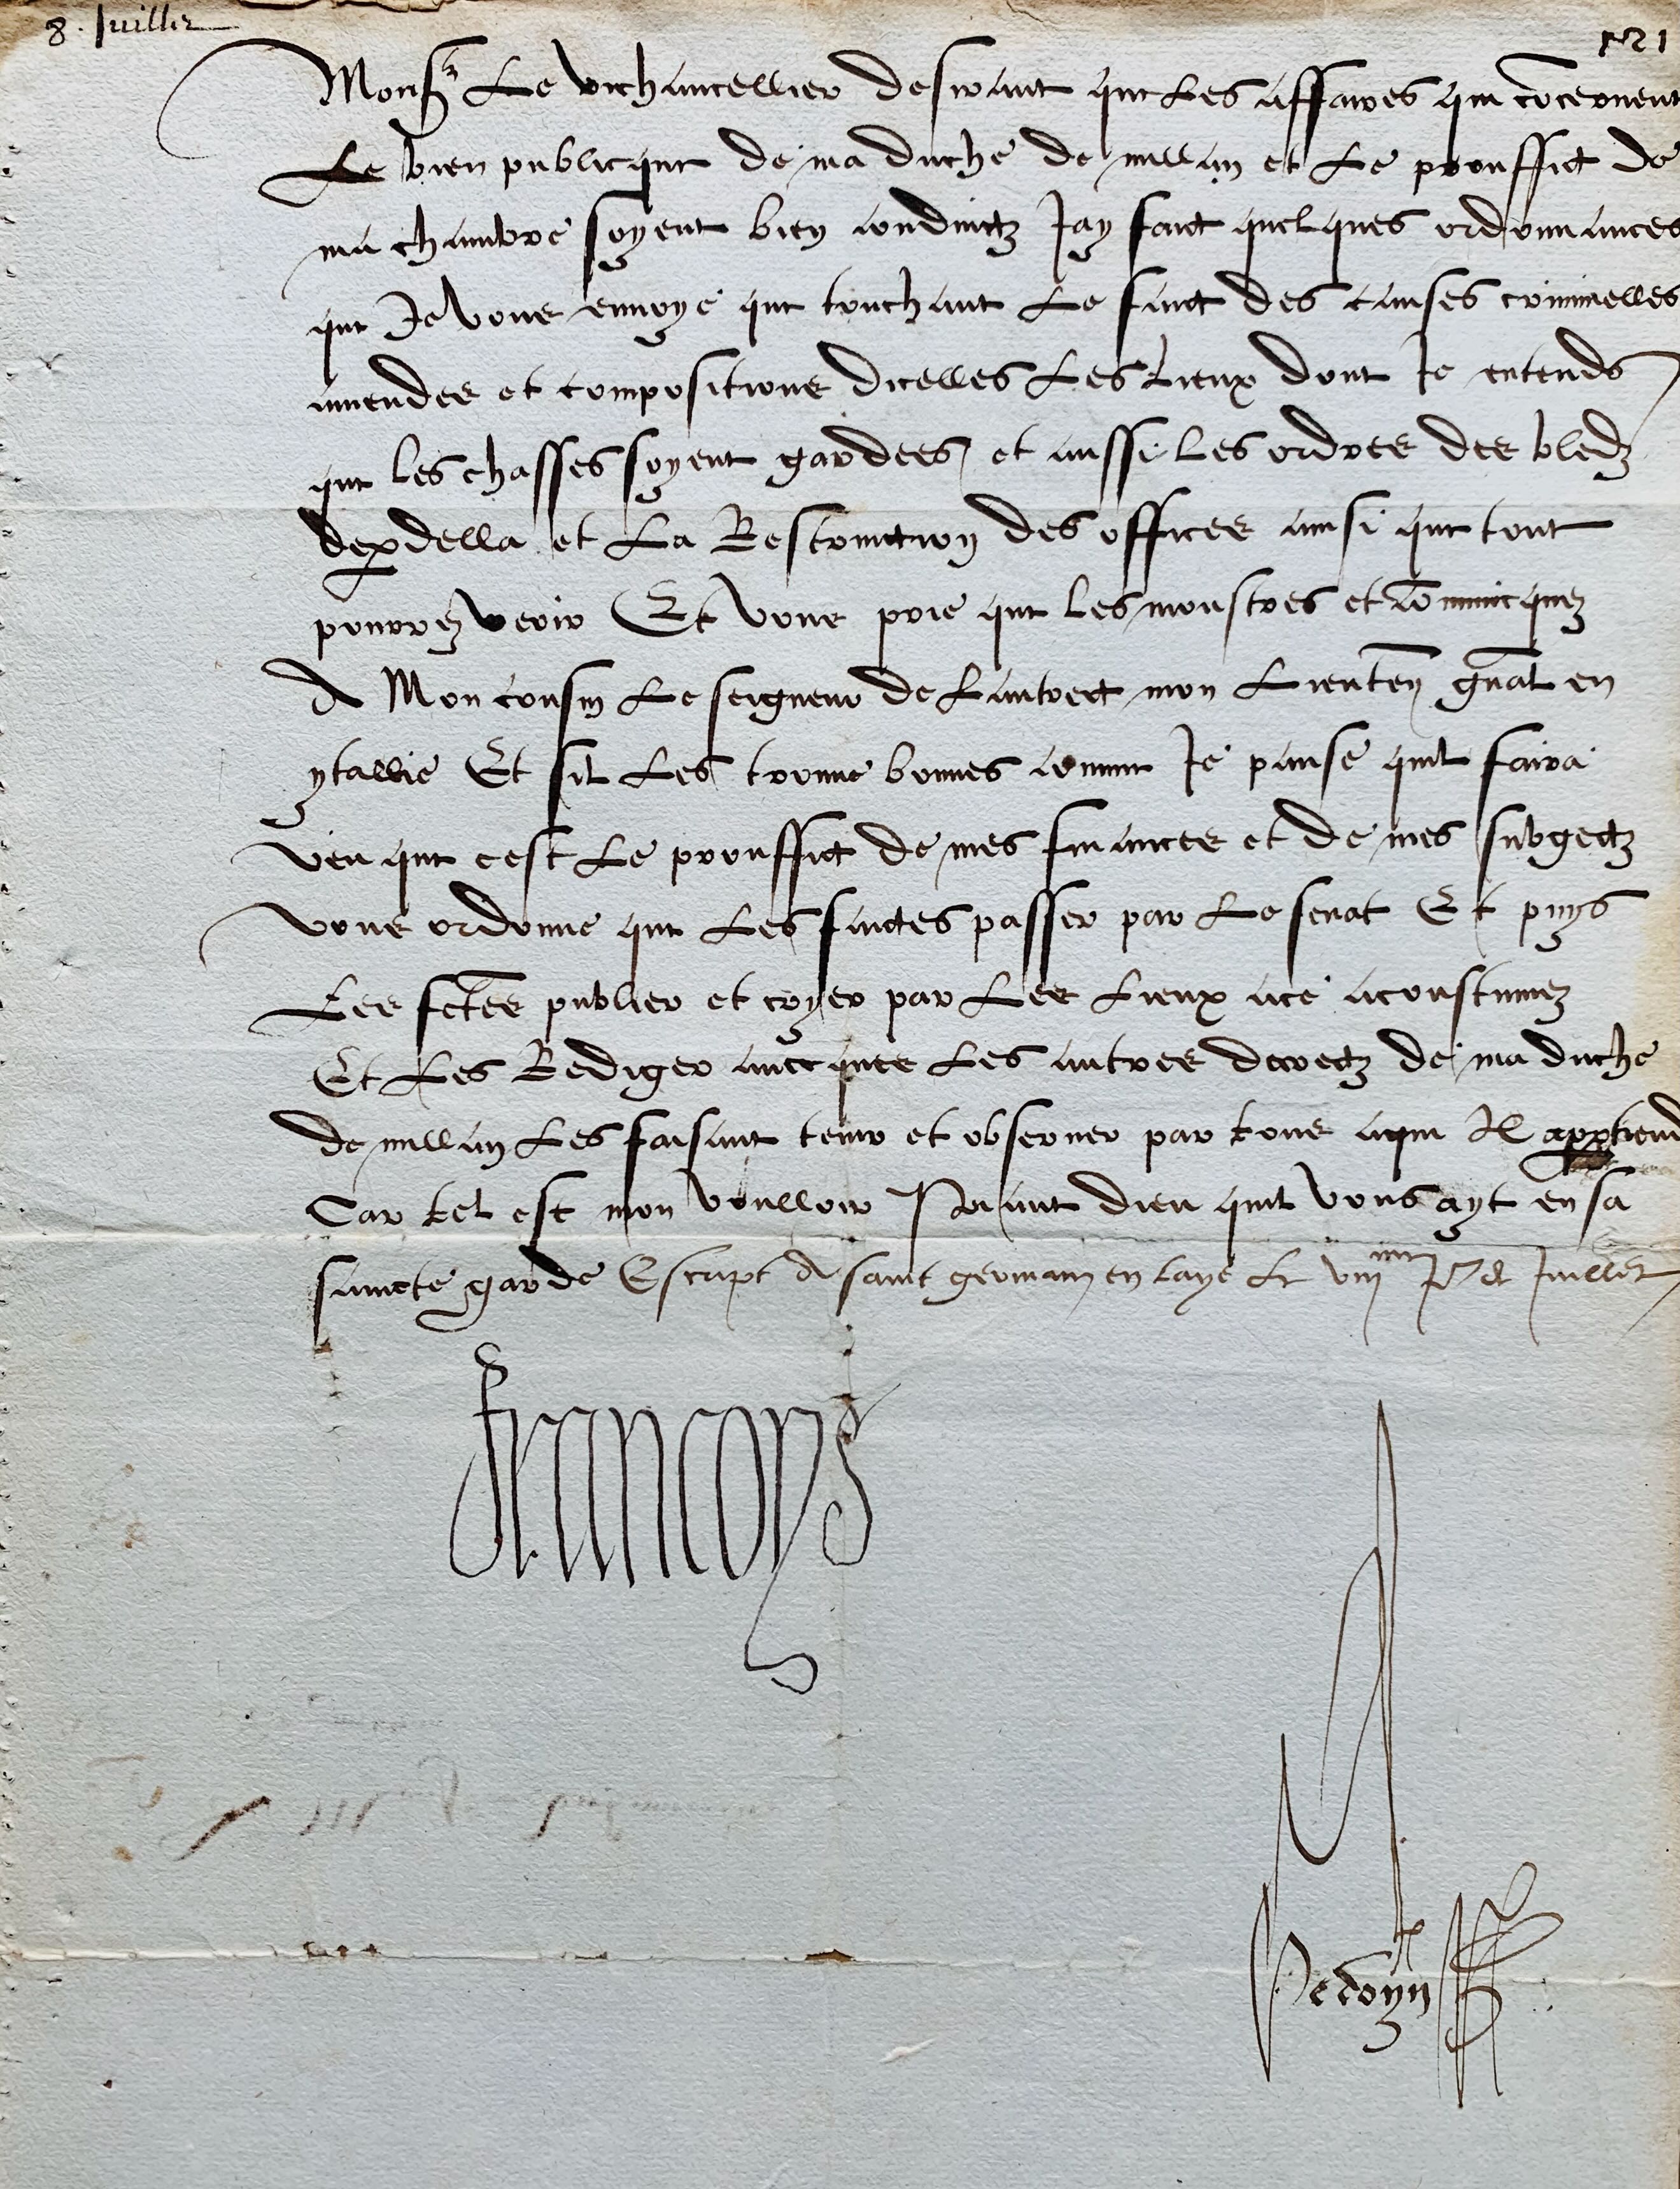 8. Juillet
1521
Monsr Le vichancellier desirant que Les affaires qui concernent
Le bien publicque de ma duche de millan et Le prouffict de
ma chambre soyent bien conduictz Jay faict quelques ordonnances
que Je vous envoye que touchant Le faict des causes criminelles
amendes et compositions dicelles Les Lieux dont Je entends
que les chasses soyent gardees et aussi Les ordres des bledz
de della et La Restrinction des offices ainsi que tout
pourrez veoir Et vous prie que les monstres et comunicquez
A Mon cousin Le seigneur de Lautrect mon Lieuten gnal en
ytallie Et sil Les trouve bonnes comme Je panse quil faira
veu que cest Le prouffict de mes finances et de mes subgectz
vous ordonne que Les faictes passer par Le senat Et puys
Les fetes publier et cryer par Les Lieux ace acoustumez
Et Les Rediger avecques Les autres decretz de ma duche
de millan Les faisant tenir et observer par tous aqui Il apptiend
Car tel est mon voulloir Priant dieu quil vous ayt en sa
saincte garde Escript A saint germain en laye Le viij me Jr de Juillet
Francoys
Hedoyn